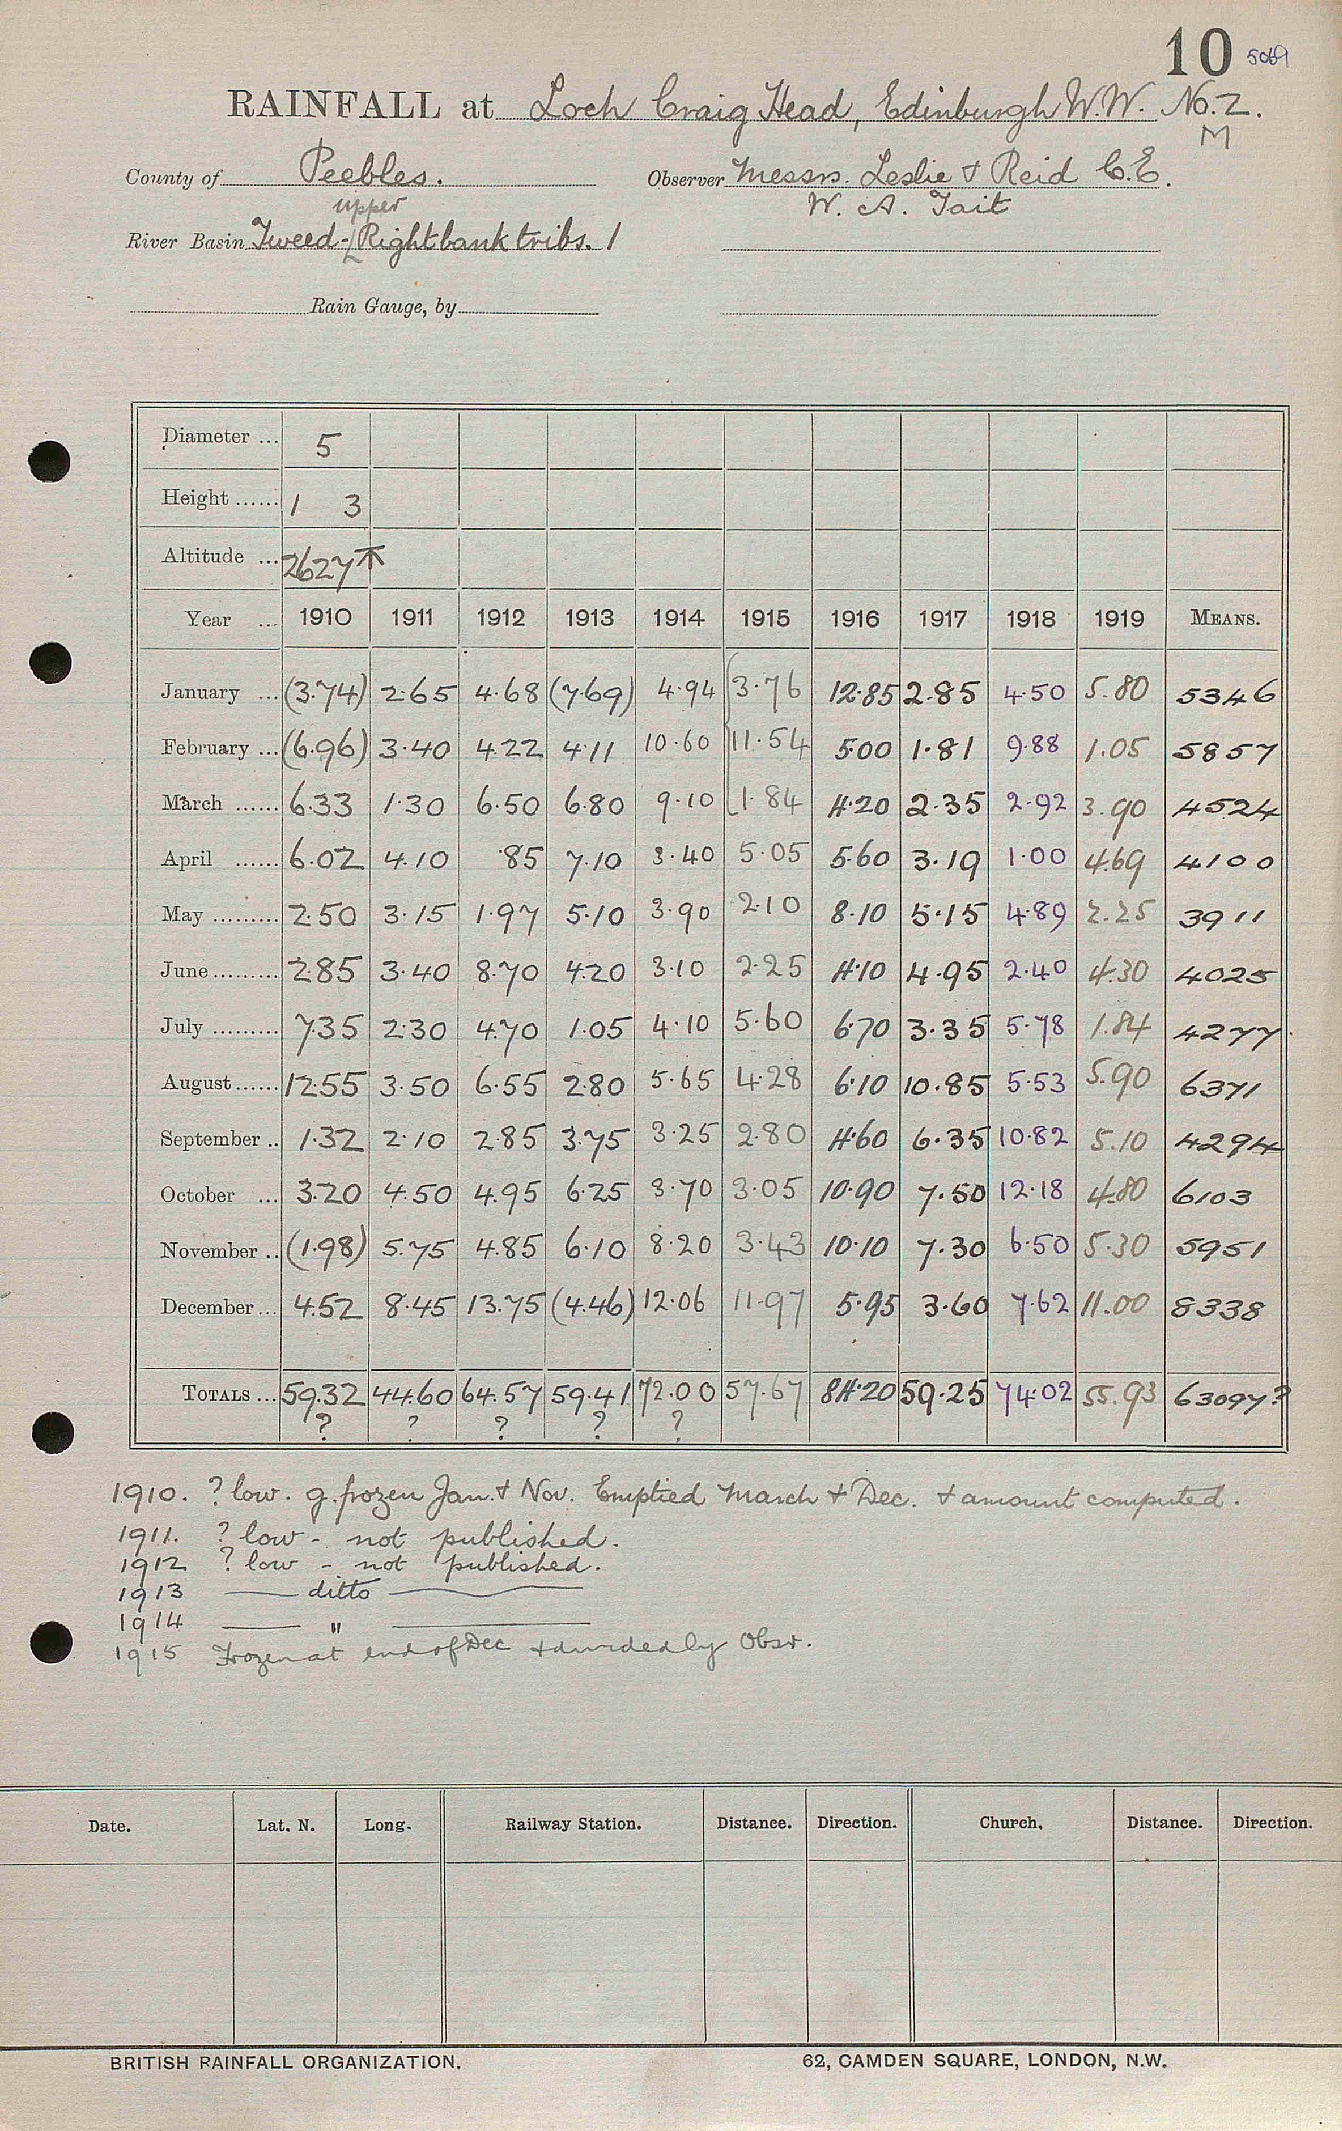 10 5069
RAINFALL at Loch Craig Head, Edinburgh W.W. No. 2.
M
County of Peebles. Observer Messrs. Leslie & Reid C.E.
upper W. A. Tait
River Basin Tweed - Right bank tribs. 1
Rain Gauge, by
Diameter ... 5
Height ...... 1 3
Altitude ... 2627
Year ... 1910 1911 1912 1913 1914 1915 1916 1917 1918 1919 MEANS.
January ... (3.74) 2.65 4.68 (7.69) 4.94 3.76 12.85 2.85 4.50 5.80 5346
February ... (6.96) 3.40 4.22 4.11 10.60 11.54 5.00 1.81 9.88 1.05 5857
March ...... 6.33 1.30 6.50 6.80 9.10 1.84 4.20 2.35 2.92 3.90 4524
April ...... 6.02 4.10 .85 7.10 3.40 5.05 5.60 3.19 1.00 4.69 4100
May ......... 2.50 3.15 1.97 5.10 3.90 2.10 8.10 5.15 4.89 2.25 3911
June ......... 2.85 3.40 8.70 4.20 3.10 2.25 4.10 4.95 2.40 4.30 4025
July ......... 7.35 2.30 4.70 1.05 4.10 5.60 6.70 3.35 5.78 1.84 4277
August ...... 12.55 3.50 6.55 2.80 5.65 4.28 6.10 10.85 5.53 5.90 6371
September .. 1.32 2.10 2.85 3.75 3.25 2.80 4.60 6.35 10.82 5.10 4294
October ... 3.20 4.50 4.95 6.25 3.70 3.05 10.90 7.50 12.18 4.80 6103
November .. (1.98) 5.75 4.85 6.10 8.20 3.43 10.10 7.30 6.50 5.30 5951
December ... 4.52 8.45 13.75 (4.46) 12.06 11.97 5.95 3.60 7.62 11.00 8338
TOTALS ... 59.32 44.60 64.57 59.41 72.00 57.67 84.20 59.25 74.02 55.93 63097?
? ? ? ? ?
1910. ? low. g. frozen Jan. & Nov. Emptied March & Dec. & amount computed.
1911. ? low - not published.
1912 ? low - not published.
1913 — ditto —
1914 — " —
1915 Frozen at end of Dec & divided by Obsr.
Date. Lat. N. Long. Railway Station. Distance. Direction. Church. Distance. Direction.
BRITISH RAINFALL ORGANIZATION. 62, CAMDEN SQUARE, LONDON, N.W.